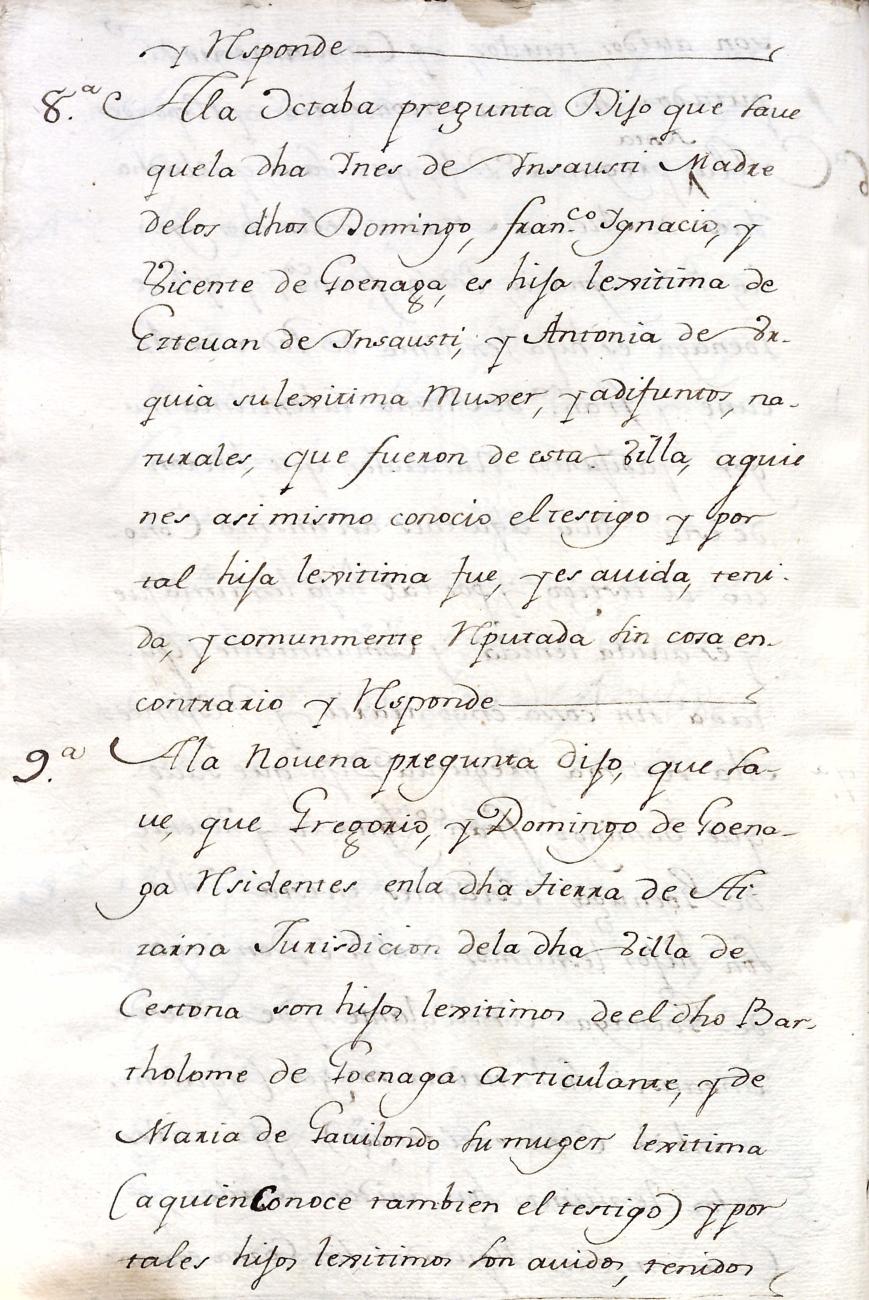 y Responde
8.ª Ala Octaba pregunta Dijo que save
quela dha Ines de Insausti Madre
delos dhos Domingo, fran.co Ignacio, y
Vicente de Goenaga, es hija lexitima de
Eztevan de Insausti, y Antonia de Vr-
quia sulexitima Muxer, y adifuntos, na-
turales, que fueron de esta Villa, aquie
nes asi mismo conocio el testigo y por
tal hija lexitima fue, y es auida, teni-
da, y comunmente Reputada sin cosa en-
contrario y Responde
9.ª Ala Novena pregunta dijo, que sa-
ue, que Gregorio, y Domingo de Goena-
ga Residentes enla dha tierra de Ai
zarna Jurisdicion dela dha Villa de
Cestona son hijos lexitimos de el dho Bar-
tholome de Goenaga Articulante, y de
Maria de Gauilondo su muger lexitima
(a quien Conoce tambien el testigo) y por
tales hijos lexitimos son auidos, tenidos